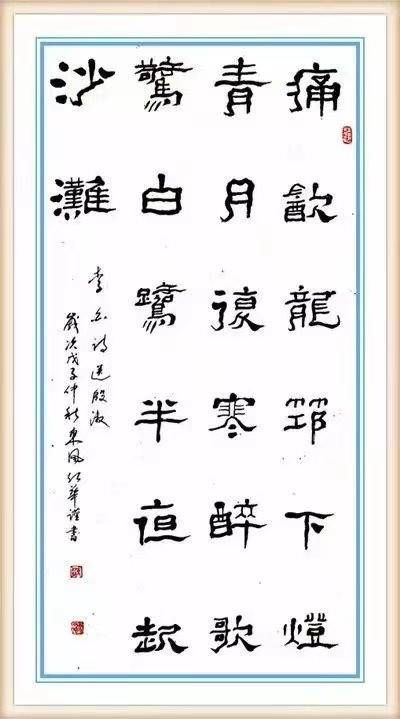 痛飲龍筇下燈
青月復寒醉歌
驚白鷺半夜起
沙灘
李白诗送殷淑
歲次戊子仲秋東風红華谨書